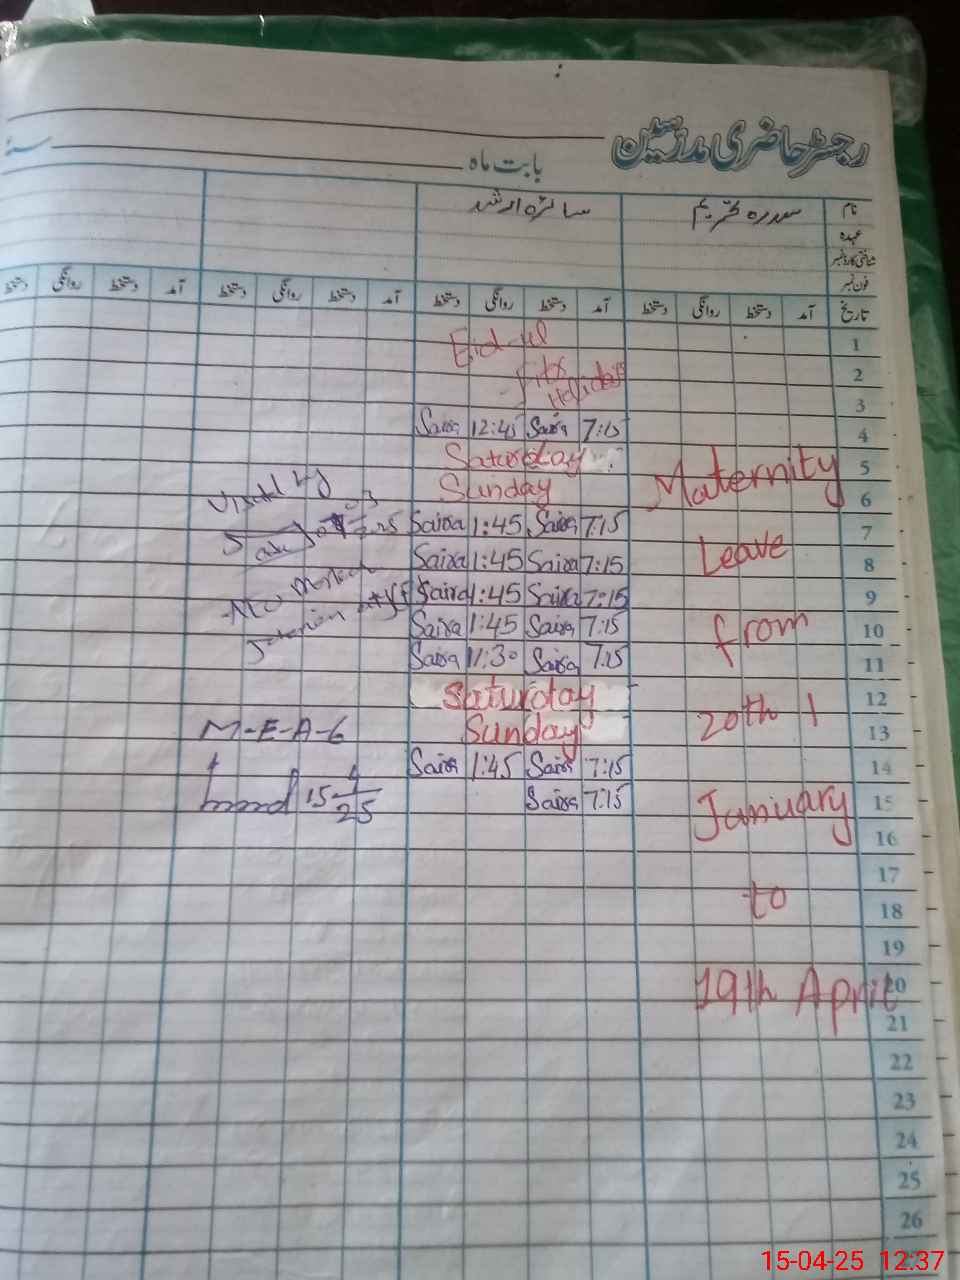 رجسٹر حاضری مدرسین
بابت ماہ سنہ
نام سدرہ تحریم سائرہ ارشد
عہدہ
شناختی کارڈ نمبر
فون نمبر
تاریخ آمد دستخط روانگی دستخط آمد دستخط روانگی دستخط آمد دستخط روانگی دستخط آمد دستخط روانگی دستخط
1 Eid-ul
2 Fitr
3 Holidays
4 Saira 12:45 Saira 7:15
5 Saturday
6 Sunday
7 Saira 1:45 Saira 7:15
8 Saira 1:45 Saira 7:15
9 Saira 1:45 Saira 7:15
10 Saira 1:45 Saira 7:15
11 Saira 11:30 Saira 7:15
12 Saturday
13 Sunday
14 Saira 1:45 Saira 7:15
15 Saira 7:15
16
17
18
19
20
21
22
23
24
25
26
Maternity
Leave
from
20th
January
to
19th April
Visited by
M-E-A-6
15-4-25
15-04-25 12:37